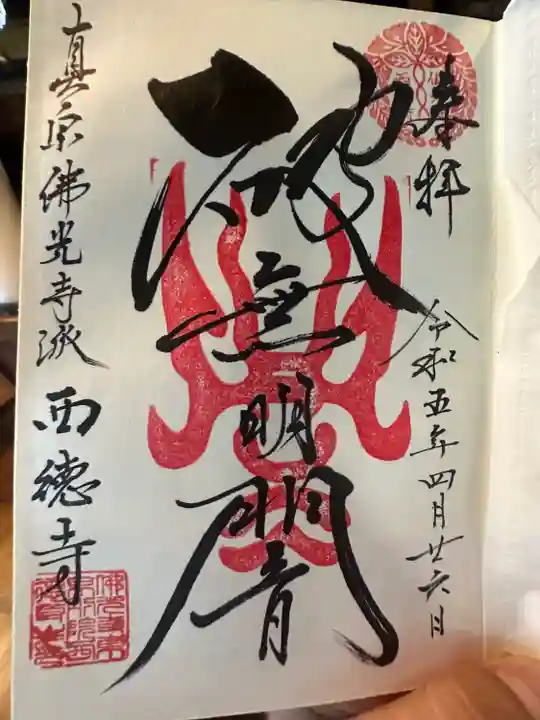 奉拝
令和五年四月廿六日
破無明闇
真宗佛光寺派 西徳寺